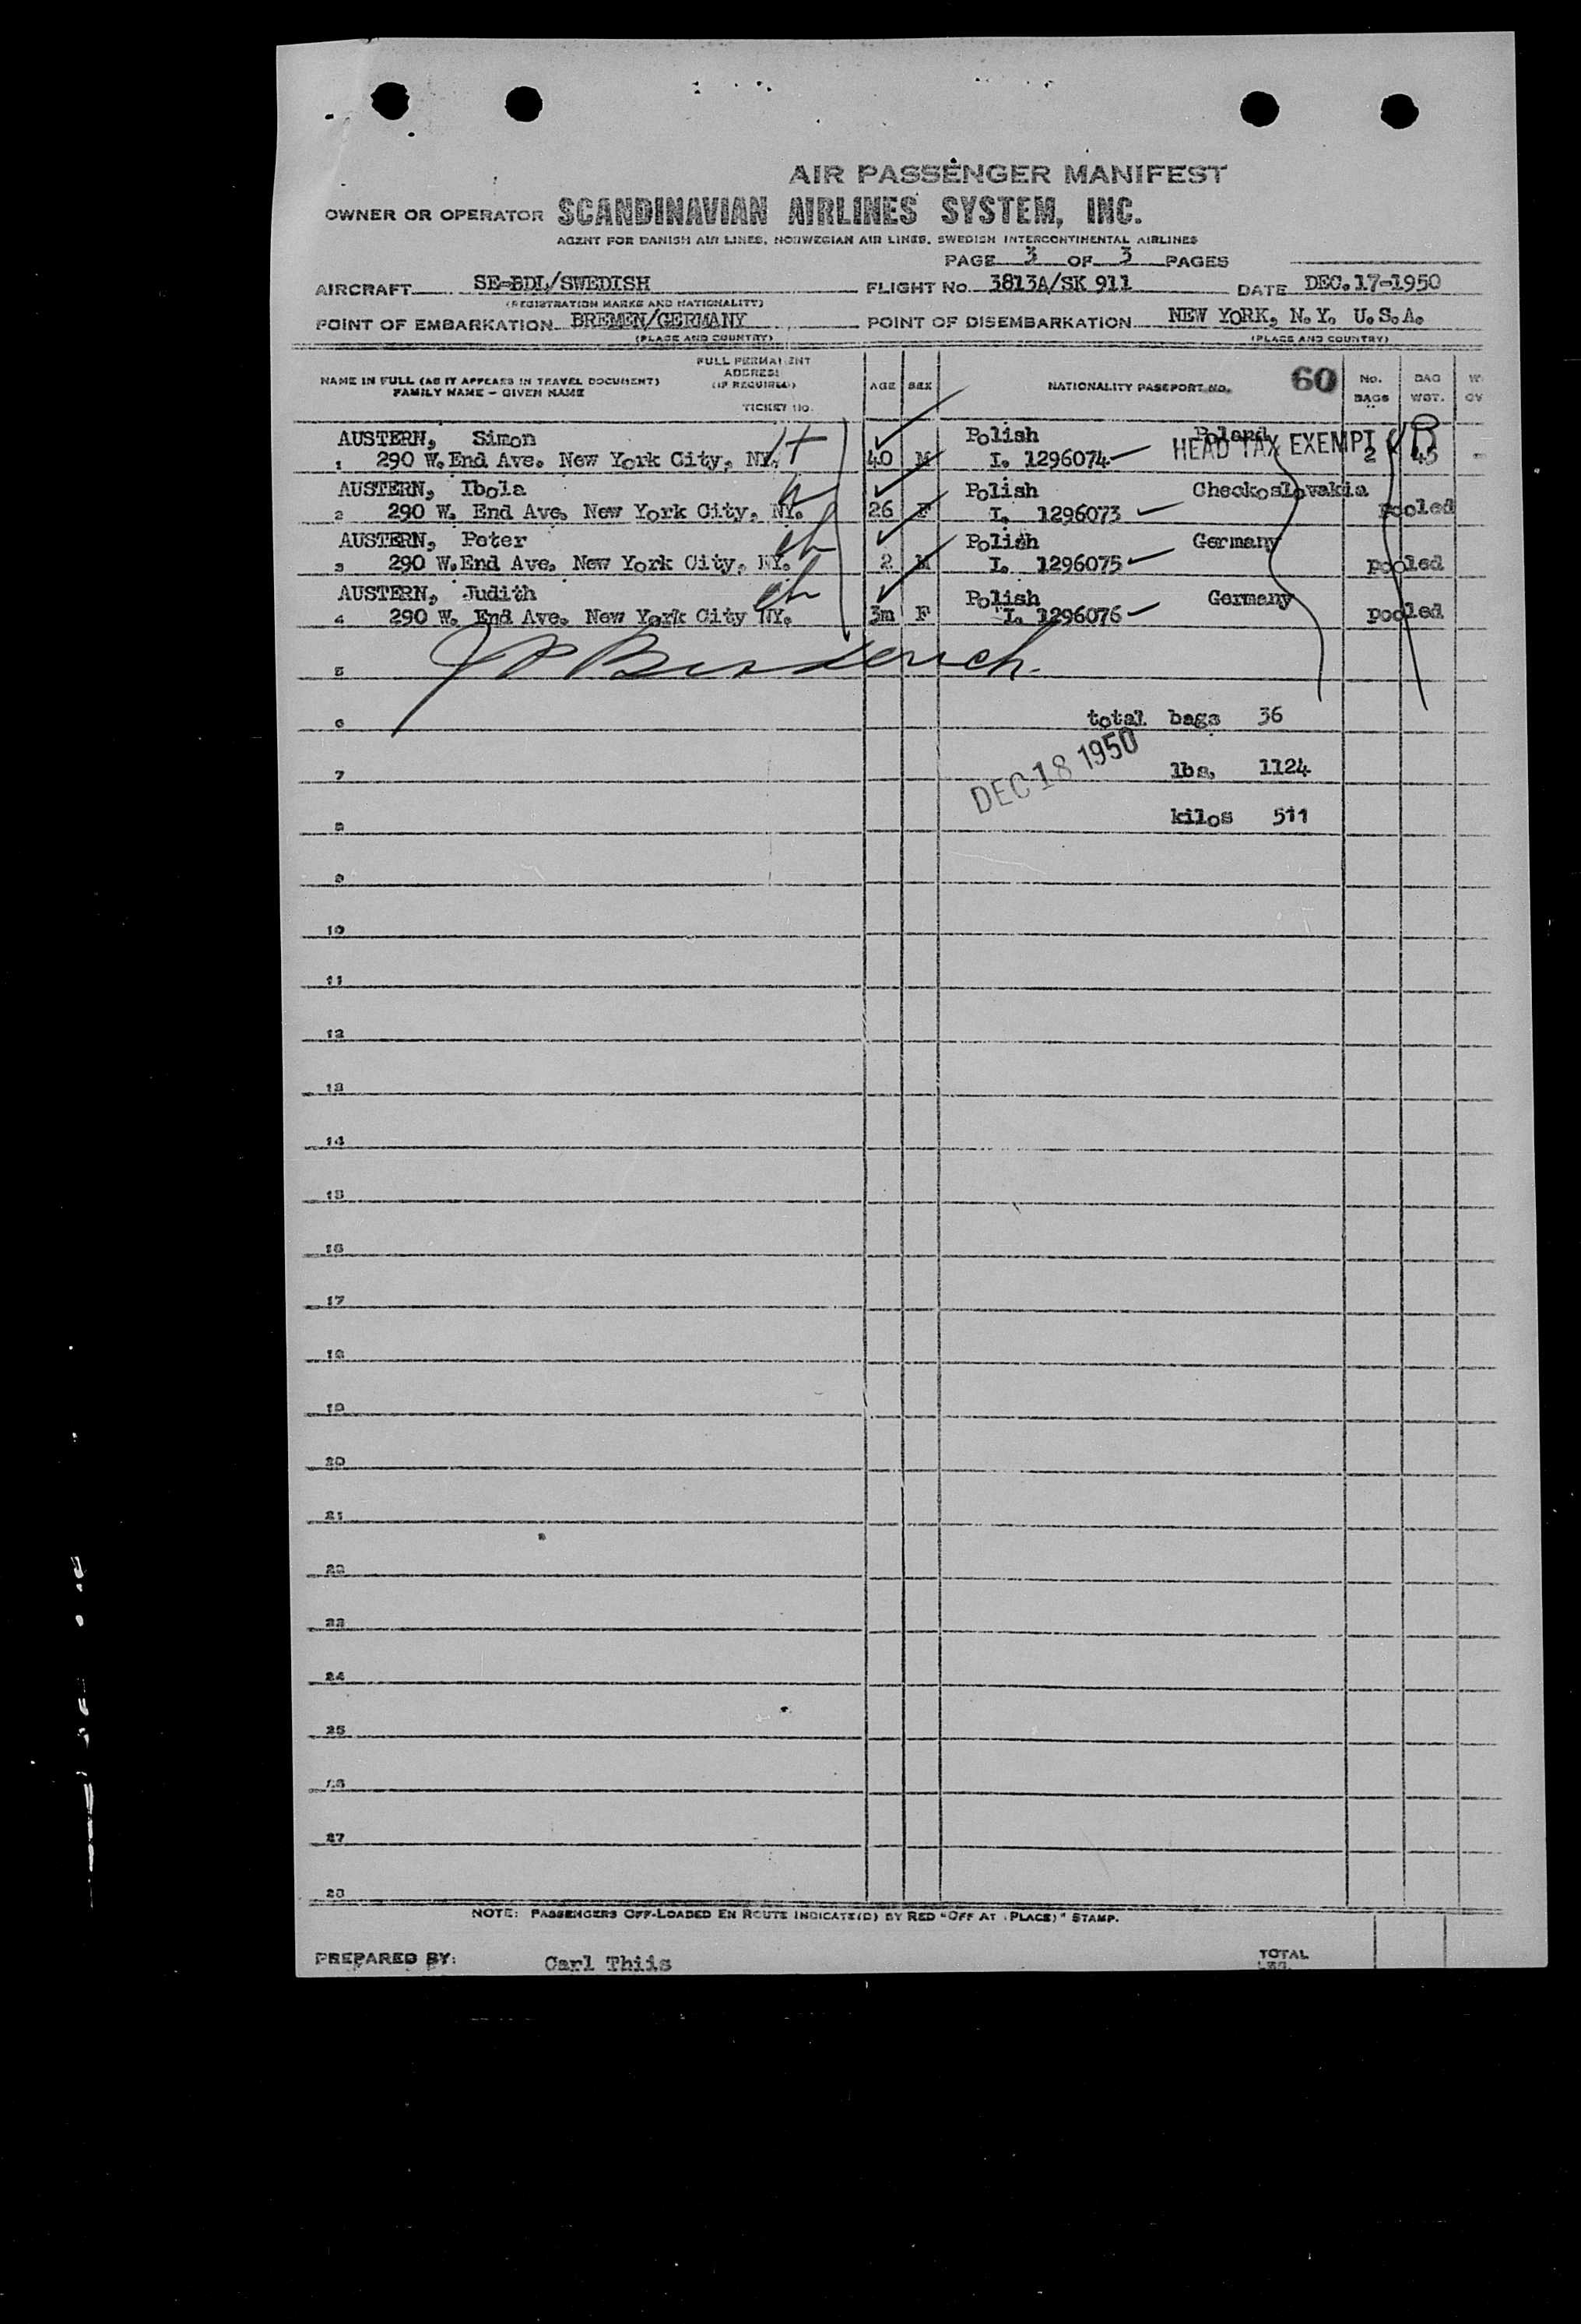 AIR PASSENGER MANIFEST
OWNER OR OPERATOR SCANDINAVIAN AIRLINES SYSTEM, INC.
AGENT FOR DANISH AIR LINES, NORWEGIAN AIR LINES, SWEDISH INTERCONTINENTAL AIRLINES
PAGE 3 OF 3 PAGES
AIRCRAFT SE-BDL/SWEDISH FLIGHT No. 3813A/SK 911 DATE DEC.17-1950
(REGISTRATION MARKS AND NATIONALITY)
POINT OF EMBARKATION BREMEN/GERMANY POINT OF DISEMBARKATION NEW YORK, N.Y. U.S.A.
(PLACE AND COUNTRY) (PLACE AND COUNTRY)
FULL PERMANENT
ADDRESS
NAME IN FULL (AS IT APPEARS IN TRAVEL DOCUMENT) (IF REQUIRED) AGE SEX NATIONALITY PASSPORT NO. 60 No. BAG
FAMILY NAME - GIVEN NAME BAGS WGT.
TICKET NO.
AUSTERN, Simon Polish Poland
1 290 W.End Ave. New York City, NY. 40 M I. 1296074 HEAD TAX EXEMPT 2 45
AUSTERN, Ibola Polish Checkoslovakia
2 290 W. End Ave. New York City, NY. 26 F I. 1296073 pooled
AUSTERN, Peter Polish Germany
3 290 W.End Ave. New York City, NY. 2 M I. 1296075 pooled
AUSTERN, Judith Polish Germany
4 290 W. End Ave. New York City NY. 3m F I. 1296076 pooled
5
6 total bags 36
DEC 18 1950
7 lbs. 1124
8 kilos 511
9
10
11
12
13
14
15
16
17
18
19
20
21
22
23
24
25
26
27
28
NOTE: PASSENGERS OFF-LOADED EN ROUTE INDICATE(D) BY RED "OFF AT (PLACE)" STAMP.
PREPARED BY: Carl Thiis TOTAL